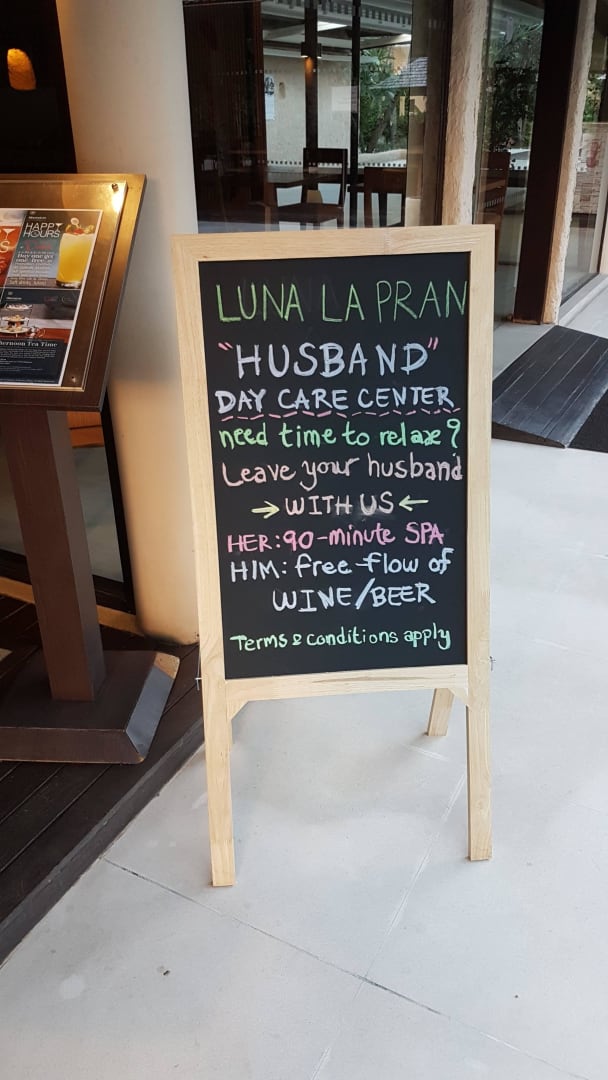 LUNA LA PRAN
"HUSBAND"
DAY CARE CENTER
need time to relaxe?
Leave your husband
→ WITH US ←
HER: 90-minute SPA
HIM: free-flow of
WINE/BEER
Terms & conditions apply
HAPPY
HOURS
Afternoon Tea Time